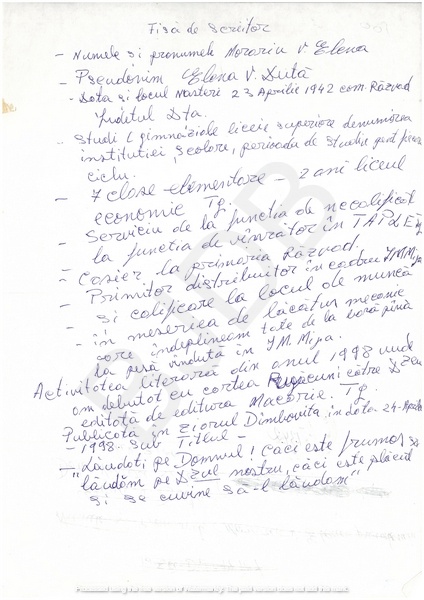 Fișă de Scriitor
- Numele și pronumele Morariu V Elena
- Pseudonim Elena V. Dută
- Data și locul Nasteri 23 Aprilie 1942 com. Răzvad
Judetul D-ta.
- Studi (gimnaziale liceii superioare denumirea
institutiei, școlare, perioada de studiu pet
ciclu.
- 7 clase elementare - 2 ani liceul
economic Tg.
- Serviciu de la functia de necalificat
la functia de vînzător în TAPLE
- Casier la primăria Răzvad.
- Primitor distribuitor în cadru I.M.Mija
- și calificare la locul de muncă
- în meseria de lăcătuș mecanic
care îndeplineam tate de la bară pînă
la pusă vîndută în I.M. Mija.
Activitatea literară din anul 1998 unde
am debutat cu cartea Rugăciuni către D-zeu
editată de editura Macarie. Tg.
Publicată în ziarul Dîmbovița în data 24 Aprilie
- 1998. sub Titlul -
- "Lăudați pe Domnul! Căci este frumos să
lăudăm pe D-zul nostru, căci este plăcut
și se cuvine să-l lăudăm"